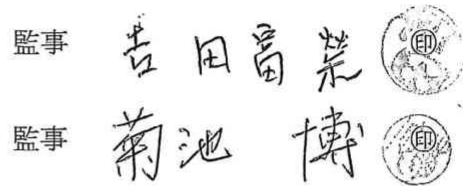 監事 吉田富榮 ㊞
監事 菊池 博 ㊞